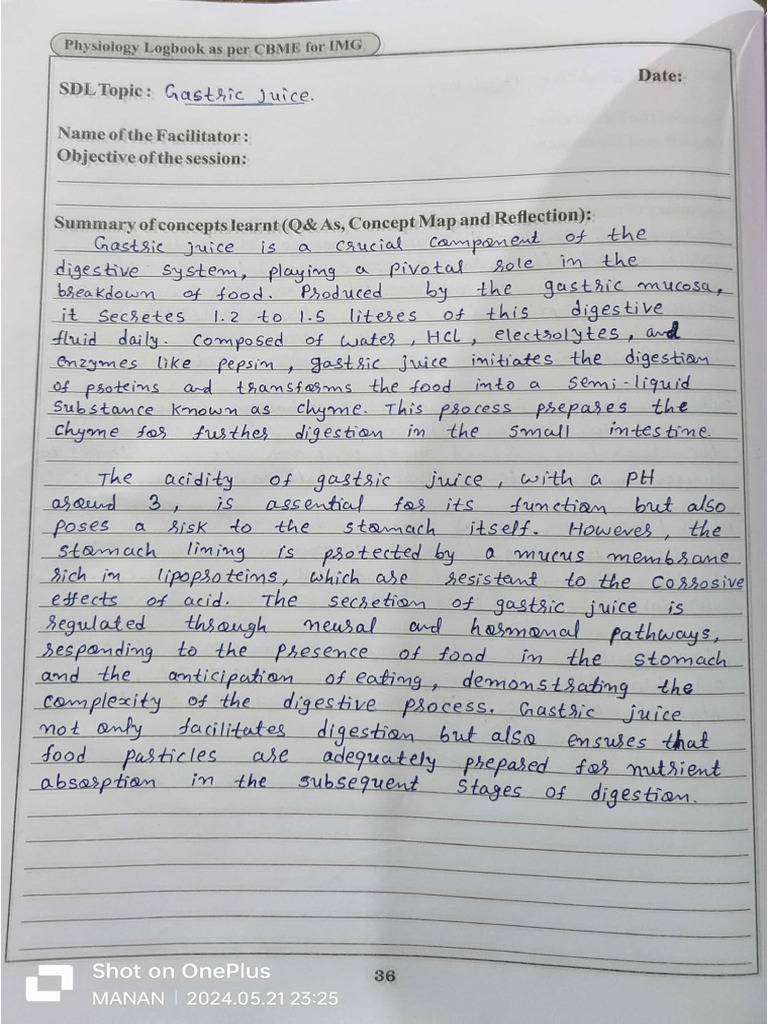 Physiology Logbook as per CBME for IMG
Date:
SDL Topic : Gastric juice.
Name of the Facilitator :
Objective of the session:
Summary of concepts learnt (Q& As, Concept Map and Reflection):
Gastric juice is a crucial component of the
digestive system, playing a pivotal role in the
breakdown of food. Produced by the gastric mucosa,
it secretes 1.2 to 1.5 liters of this digestive
fluid daily. Composed of water, HCl, electrolytes, and
enzymes like pepsin, gastric juice initiates the digestion
of proteins and transforms the food into a semi-liquid
substance known as chyme. This process prepares the
chyme for further digestion in the small intestine.
The acidity of gastric juice, with a PH
around 3, is essential for its function but also
poses a risk to the stomach itself. However, the
stomach lining is protected by a mucus membrane
rich in lipoproteins, which are resistant to the corrosive
effects of acid. The secretion of gastric juice is
regulated through neural and hormonal pathways,
responding to the presence of food in the stomach
and the anticipation of eating, demonstrating the
complexity of the digestive process. Gastric juice
not only facilitates digestion but also ensures that
food particles are adequately prepared for nutrient
absorption in the subsequent stages of digestion.
36
Shot on OnePlus
MANAN | 2024.05.21 23:25